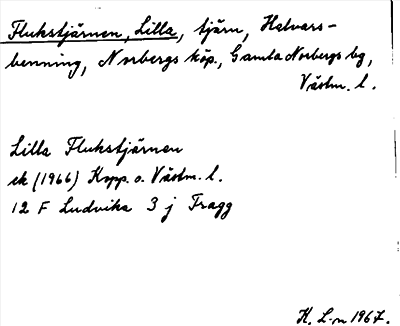 Flukstjärnen, Lilla, tjärn, Halvars-
benning, Norbergs köp., Gamla Norbergs bg,
Västm. l.
Lilla Flukstjärnen
ek (1966) Kopp. o. Västm. l.
12 F Ludvika 3 j Fragg
K. L-n 1967.